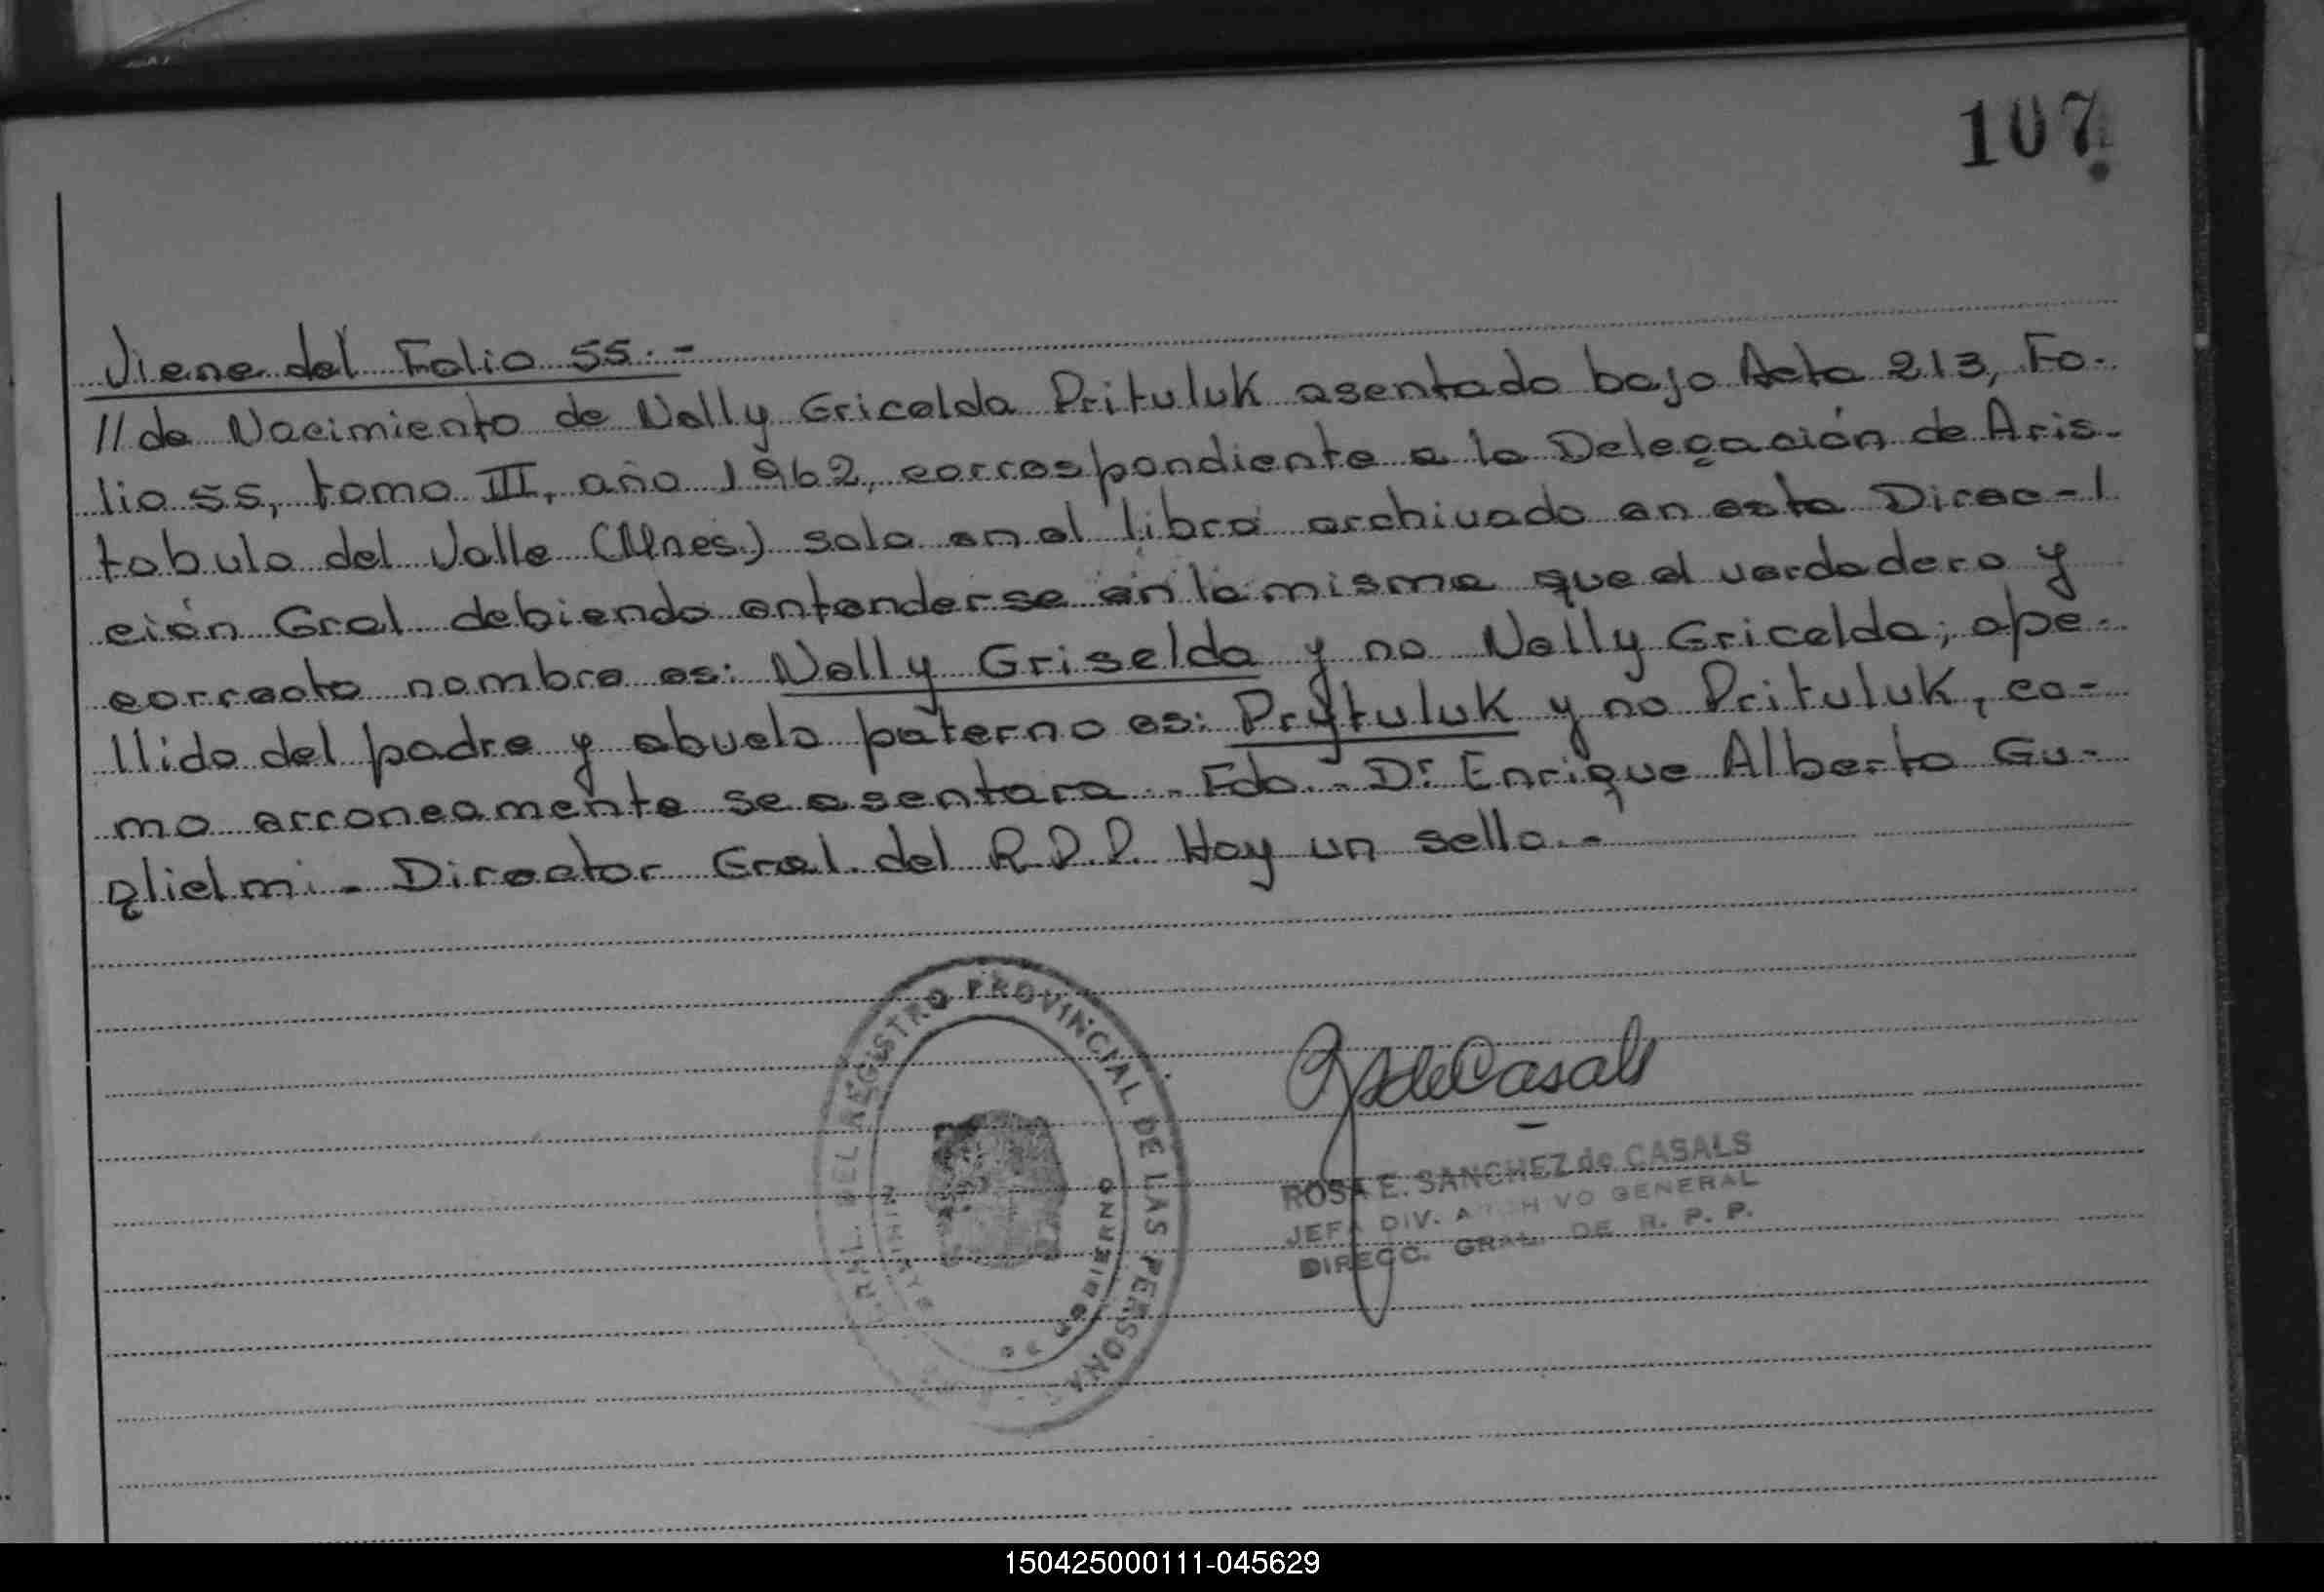 107
Viene del Folio 55.-
// de Nacimiento de Nelly Gricelda Prituluk asentado bajo Acta 213, Fo-
lio 55, tomo III, año 1962, correspondiente a la Delegación de Aris-
tobulo del Valle (Mnes.) solo en el libro archivado en esta Direc-/
ción Gral debiendo entenderse en la misma que el verdadero y
correcto nombre es: Nelly Griselda y no Nelly Gricelda; ape-
llido del padre y abuelo paterno es: Prytuluk y no Prituluk, co-
mo erroneamente se asentara.- Fdo.- Dr Enrique Alberto Gu-
glielmi.- Director Gral. del R.P.P. Hay un sello.-
GRAL. DEL REGISTRO PROVINCIAL DE LAS PERSONAS
GOBIERNO
RSdeCasals
ROSA E. SANCHEZ de CASALS
JEFA DIV. ARCHIVO GENERAL
DIRECC. GRAL. DE R. P. P.
150425000111-045629